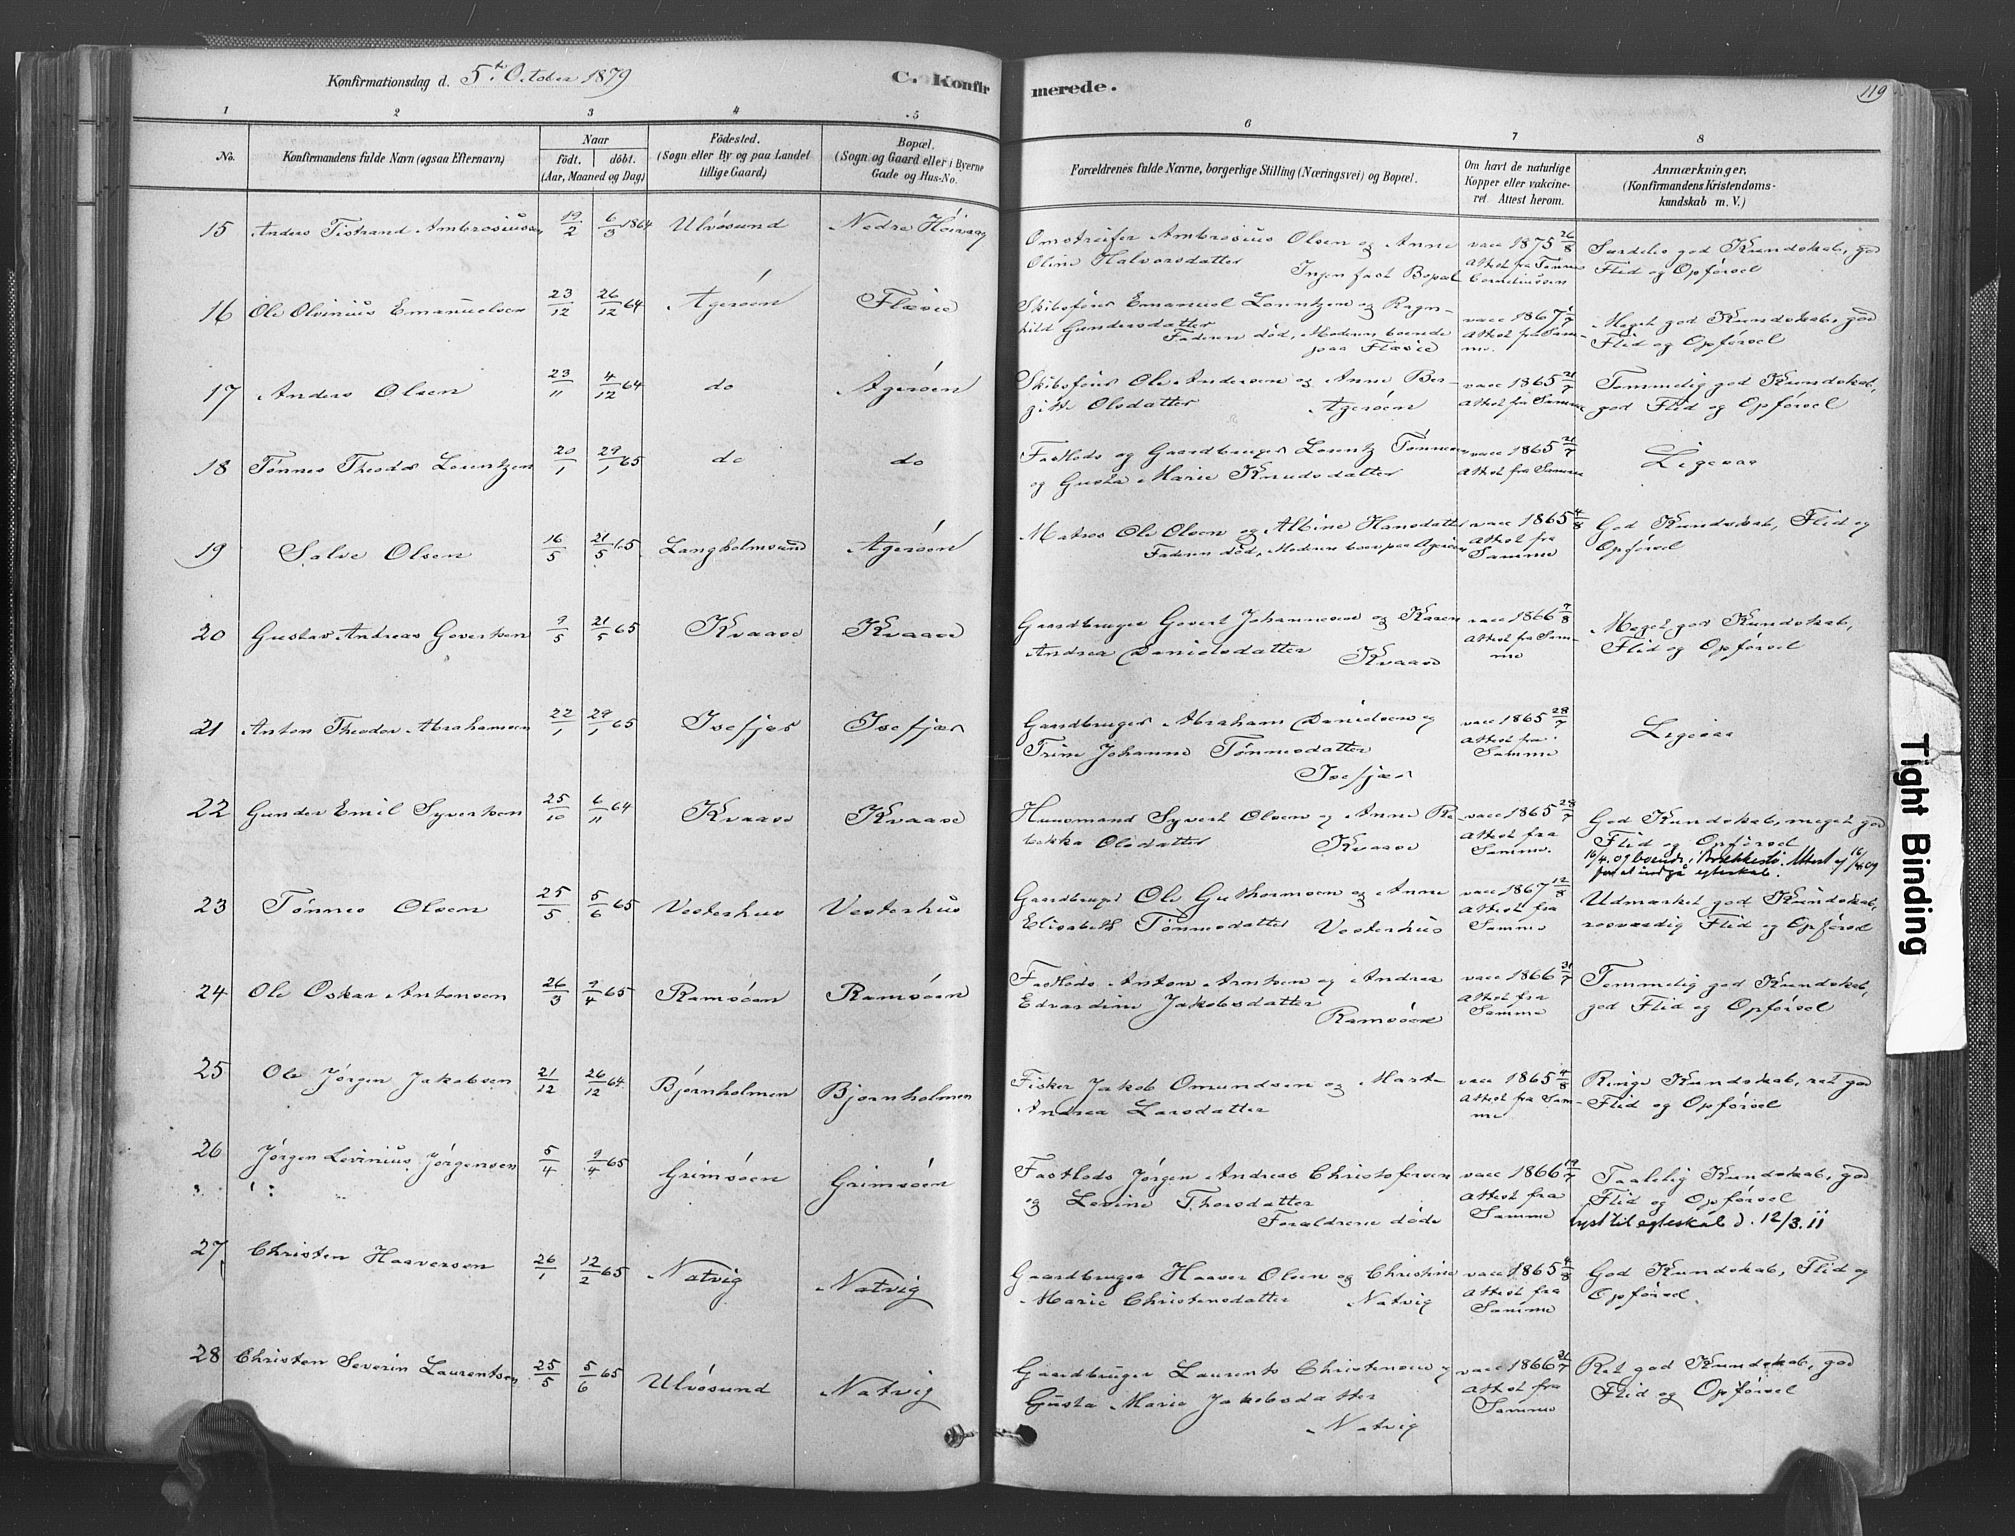 Konfirmationsdag d. 5te October 1879
C. Konfirmerede.
119
1 2 3 4 5 6 7 8
No.
Konfirmandens fulde Navn (ogsaa Efternavn)
Naar
födt. döbt.
(Aar, Maaned og Dag)
Födested.
(Sogn eller By og paa Landet
tillige Gaard)
Bopæl.
(Sogn og Gaard eller i Byerne
Gade og Hus-No.
Forældrenes fulde Navne, borgerlige Stilling (Næringsvei) og Bopæl.
Om havt de naturlige
Kopper eller vakcine-
ret. Attest herom.
Anmærkninger,
(Konfirmandens Kristendoms-
kundskab m. V.)
15 Anders Tistrand Ambrosiussen 19/2 6/3 1864 Ulvøsund Nedre Høivaag
Omstreifer Ambrosius Olsen og Anne
Oline Halvorsdatter Ingen fast Bopæl
vacc 1875 26/8
Attest fra Tønnes
Corneliussen
Særdeles god Kundskab, god
Flid og Opførsel
16 Ole Olvinius Emanuelsen 23/12 26/12 64 Agerøen Flæsie
Skibsfører Emanuel Lorentzen og Ragn-
hild Gundersdatter
Faderen død, Moderen boende
paa Flæsie
vacc 1867
Attest fra Sam-
me.
Meget god Kundskab, god
Flid og Opførsel
17 Anders Olsen 23/11 4/12 64 do Agerøen
Skibsfører Ole Andersen og Anne Ber-
gitte Olsdatter Agerøen
vacc 1865 21/7
Attest fra Samme
Temmelig god Kundskab,
god Flid og Opførsel
18 Tønnes Theodor Lorentzen 20/1 29/1 65 do do
Fastlods og Gaardbruger Lorentz Tønnesen
og Gusta Marie Knudsdatter
vacc 1865 21/7
Attest fra Samme
Ligesaa
19 Salve Olsen 16/5 21/5 65 Langholmsund Agerøen
Matros Ole Olsen og Albine Hansdatter
Faderen død, Moderen boer paa Agerøen
vacc 1865 4/8
Attest fra
Samme
God Kundskab, Flid og
Opførsel
20 Gustav Andreas Govertsen 9/5 21/5 65 Kvaase Kvaase
Gaardbruger Govert Johannesen og Karen
Andrea Danielsdatter Kvaase
vacc 1866 7/8
Attest fra Sam-
me
Meget god Kundskab,
Flid og Opførsel
21 Anton Theodor Abrahamsen 22/1 29/1 65 Isefjær Isefjær
Gaardbruger Abraham Danielsen og
Trine Johanne Tønnesdatter
Isefjær
vacc 1865 28/7
Attest fra
Samme
Ligesaa
22 Gunder Emil Syvertsen 25/10 6/11 64 Kvaase Kvaase
Huusmand Syvert Olsen og Anne Re
bekka Olsdatter Kvaase
vacc 1865 28/7
Attest fra
Samme.
God Kundskab, meget god
Flid og Opførsel
16/4.09 boende i Brekkestø. Attest af 16/4 09
for at indgå egteskab.
23 Tønnes Olsen 25/5 5/6 65 Vesterhus Vesterhus
Gaardbruger Ole Guthormsen og Anne
Elisabeth Tønnesdatter Vesterhus
vacc 1867 12/8
Attest fra
Samme
Udmærket god Kundskab,
rosværdig Flid og Opførsel
24 Ole Oskar Antonsen 26/3 9/4 65 Ramsøen Ramsøen
Fastlods Anton Arntsen og Andrea
Edvardine Jakobsdatter
Ramsøen
vacc 1866 31/7
Attest fra
Samme
Temmelig god Kundskab,
god Flid og Opførsel
25 Ole Jørgen Jakobsen 21/12 26/12 64 Bjørnholmen Bjørnholmen
Fisker Jakob Omundsen og Marte
Andrea Larsdatter
vacc 1865 4/8
Attest fra Sam-
me
Ringe Kundskab, ret god
Flid og Opførsel
26 Jørgen Levinius Jørgensen 5/4 9/4 65 Grimsøen Grimsøen
Fastlods Jørgen Andreas Christofersen
og Levine Thorsdatter
Forældrene døde
vacc 1866 19/7
Attest fra
Samme
Taalelig Kundskab, god
Flid og Opførsel
lyst til egteskab d. 12/3.11
27 Christen Haaversen 26/1 12/2 65 Natvig Natvig
Gaardbruger Haaver Olsen og Christine
Marie Christensdatter Natvig
vacc 1865 4/8
Attest fra
Samme
God Kundskab, Flid og
Opførsel.
28 Christen Severin Laurentsen 25/5 5/6 65 Ulvøsund Natvig
Gaardbruger Laurents Christensen og
Gusta Marie Jakobsdatter
Natvig
vacc 1866 21/7
Attest fra
Samme
Ret god Kundskab, god
Flid og Opførsel
Tight Binding